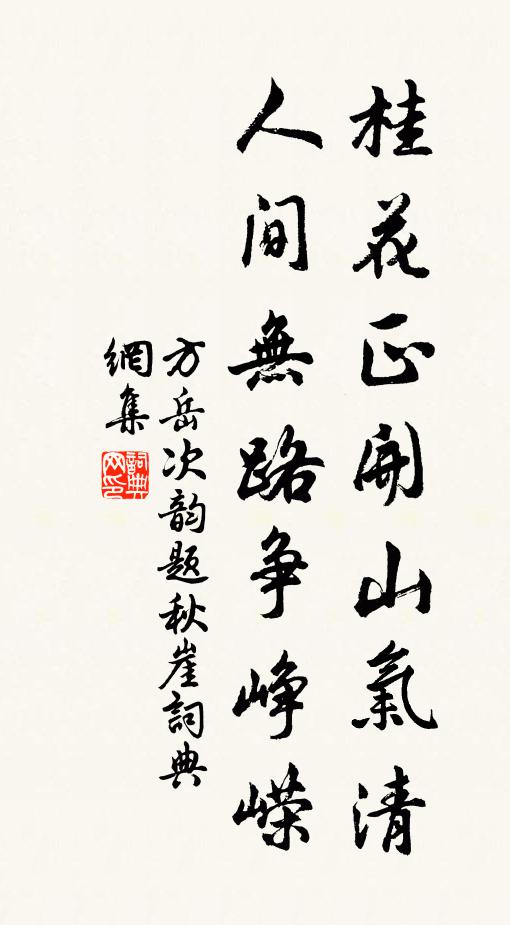 桂花正開山氣清
人間無路争峥嶸
方岳次韵题秋崖詞典
網集
詞典网印